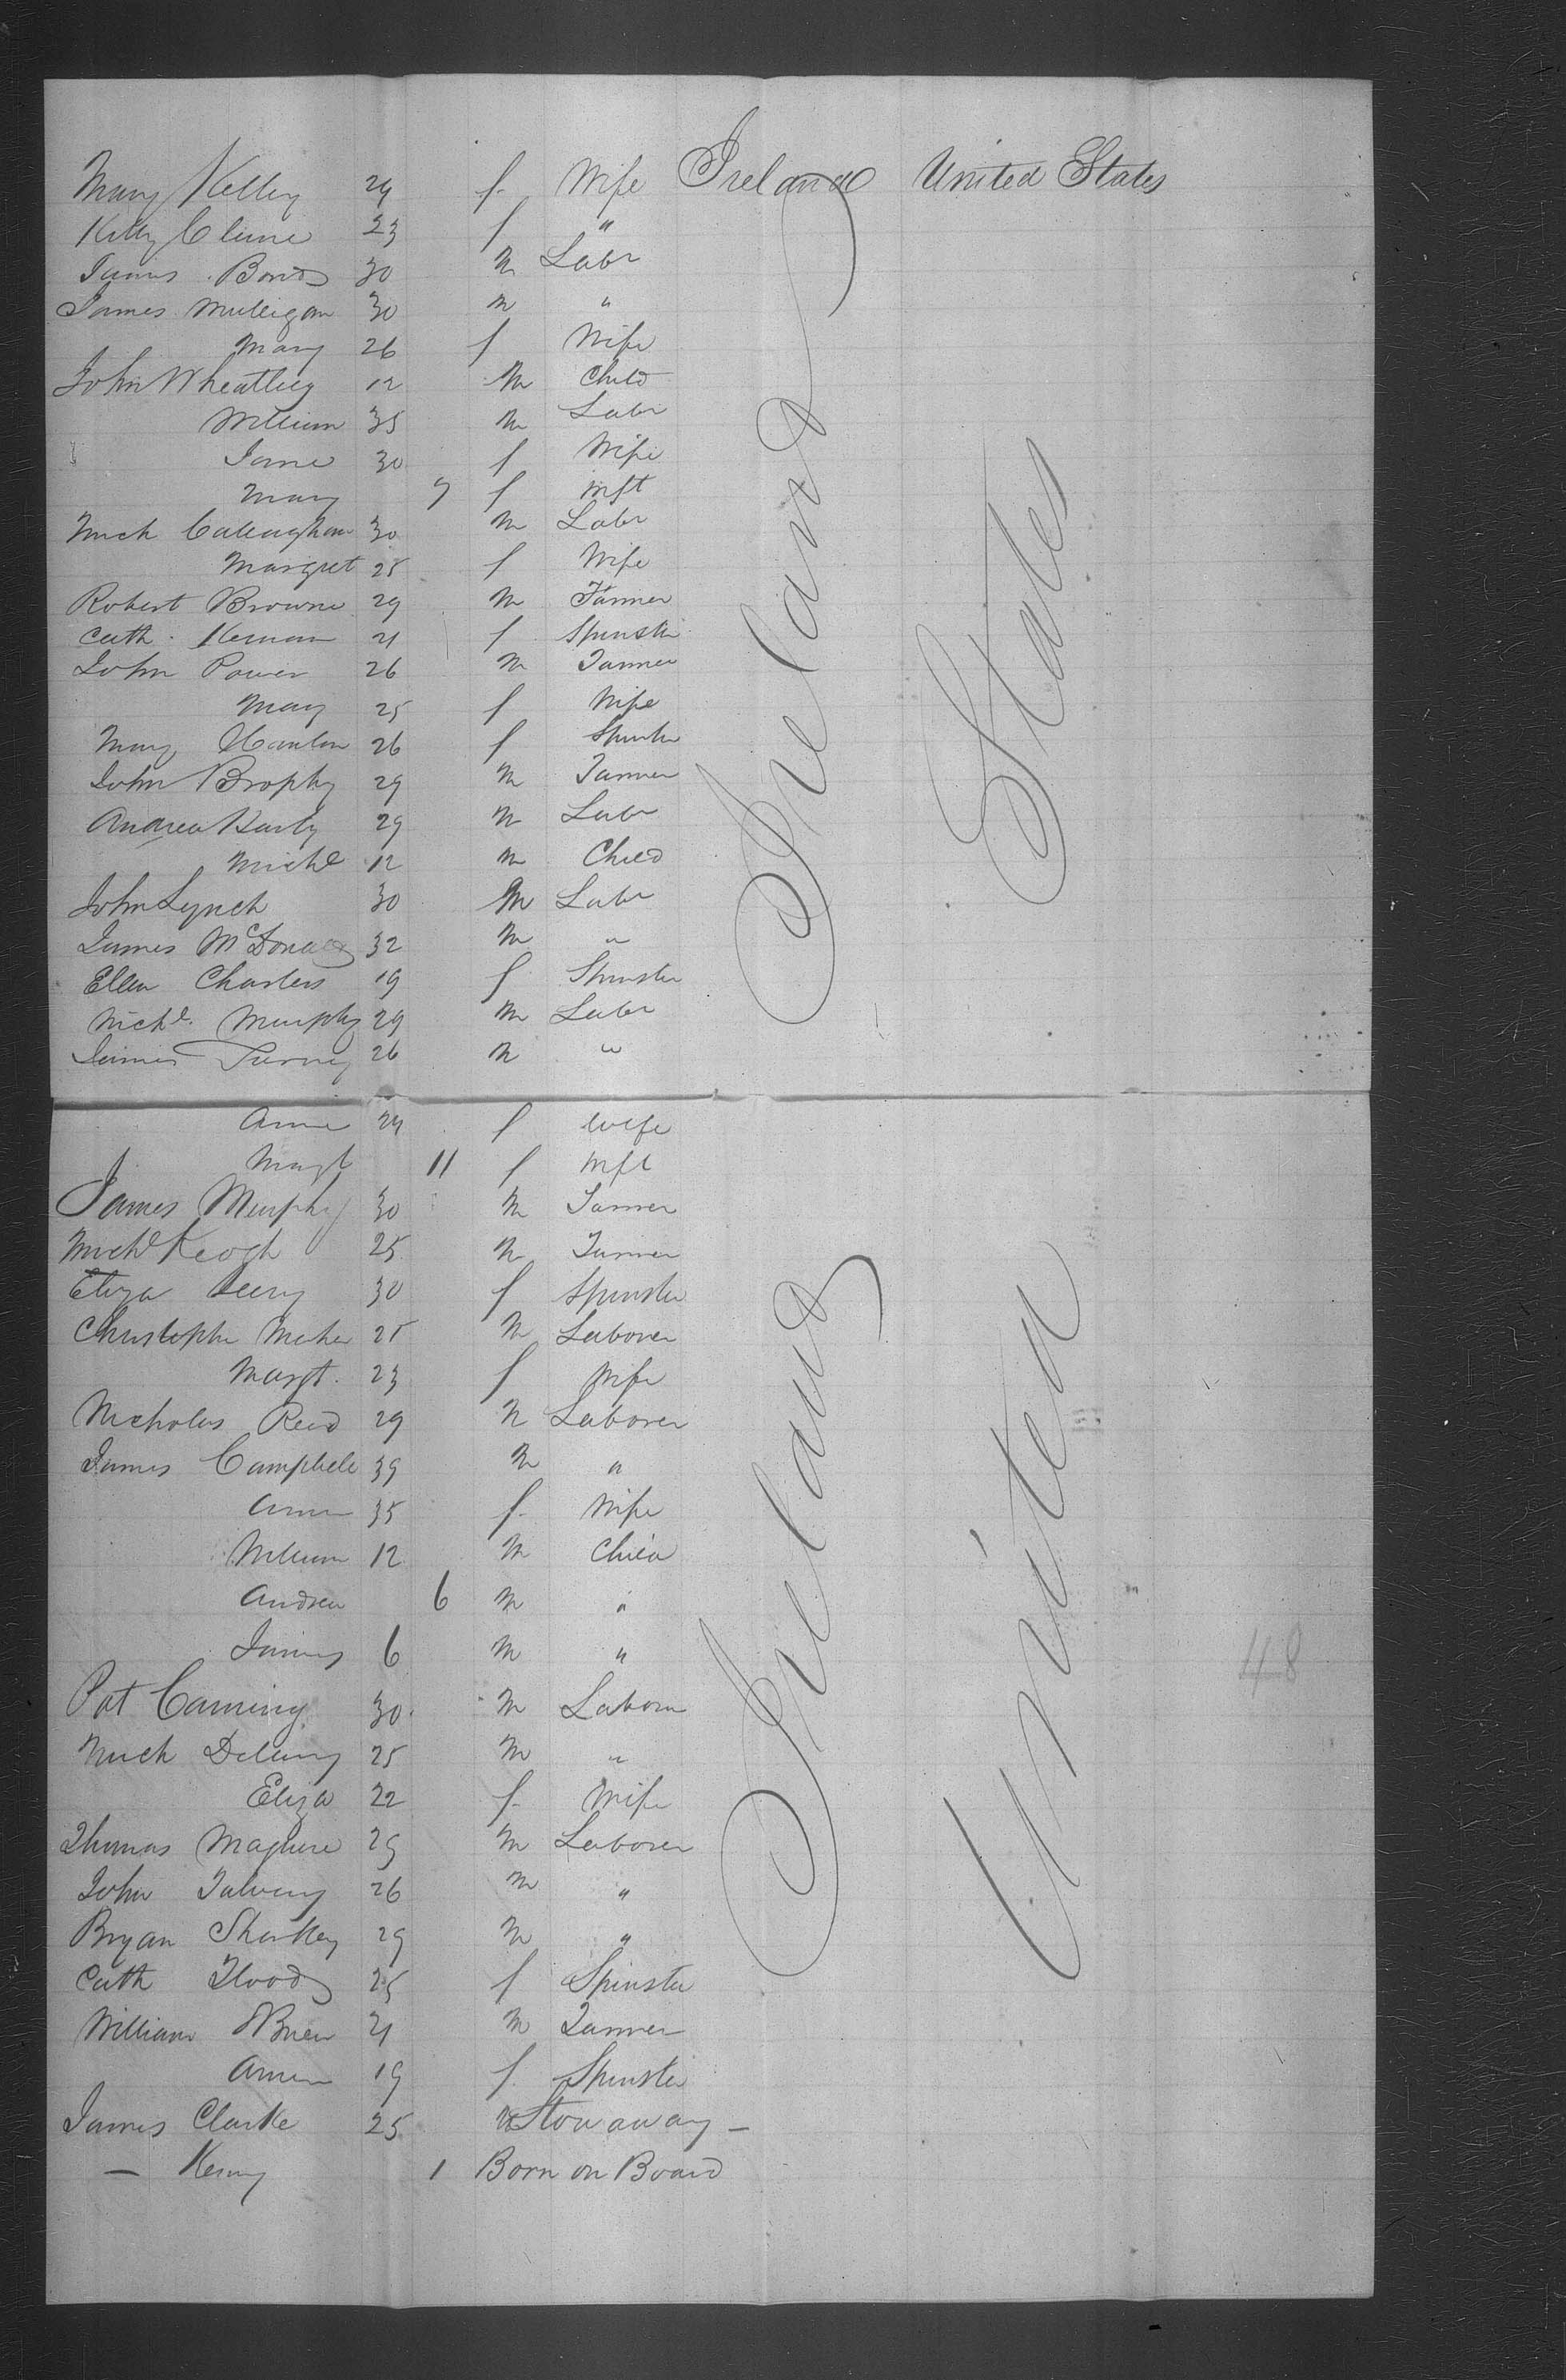 Mary Kelley 29 f Wife Ireland United States
Kitty Clune 23 f "
James Bond 30 m Labr
James Mulligan 30 m "
Mary 26 f Wife
John Wheatley 12 m Child
William 35 m Labr
Jane 30 f Wife
Mary 7 f Inft
Mich Callaughan 30 m Labr
Margret 25 f Wife
Robert Browne 29 m Farmer
Cath. 21 f Spinster
John Power 26 m Farmer
Mary 25 f Wife
Mary Hanlon 26 f Spinster
John Brophy 29 m Farmer
Andrew 29 m Labr
Michl 12 m Child
John Lynch 30 m Labr
James McDonald 32 m "
Ellen Charters 19 f Spinster
Michl. Murphy 29 m Labr
James 26 m "
Anne 24 f Wife
Margt 11 f Inft
James Murphy 30 m Farmer
Michl Keogh 25 m Farmer
Eliza 30 f Spinster
Christophr 25 m Laborer
Margt. 23 f Wife
Nicholas Reid 29 m Laborer
James Campbell 39 m "
Ann 35 f Wife
William 12 m Child
Andrew 6 m "
James 6 m "
Pat 30 m Laborer
Mich Delany 25 m "
Eliza 22 f Wife
Thomas Maguire 29 m Laborer
John 26 m "
Bryan Sharkey 29 m "
Cath Flood 25 f Spinster
William OBrien 21 m Farmer
19 f Spinster
James Clarke 25 m Stowaway —
— Kenny 1 Born on Board
Ireland
Ireland
United States
48